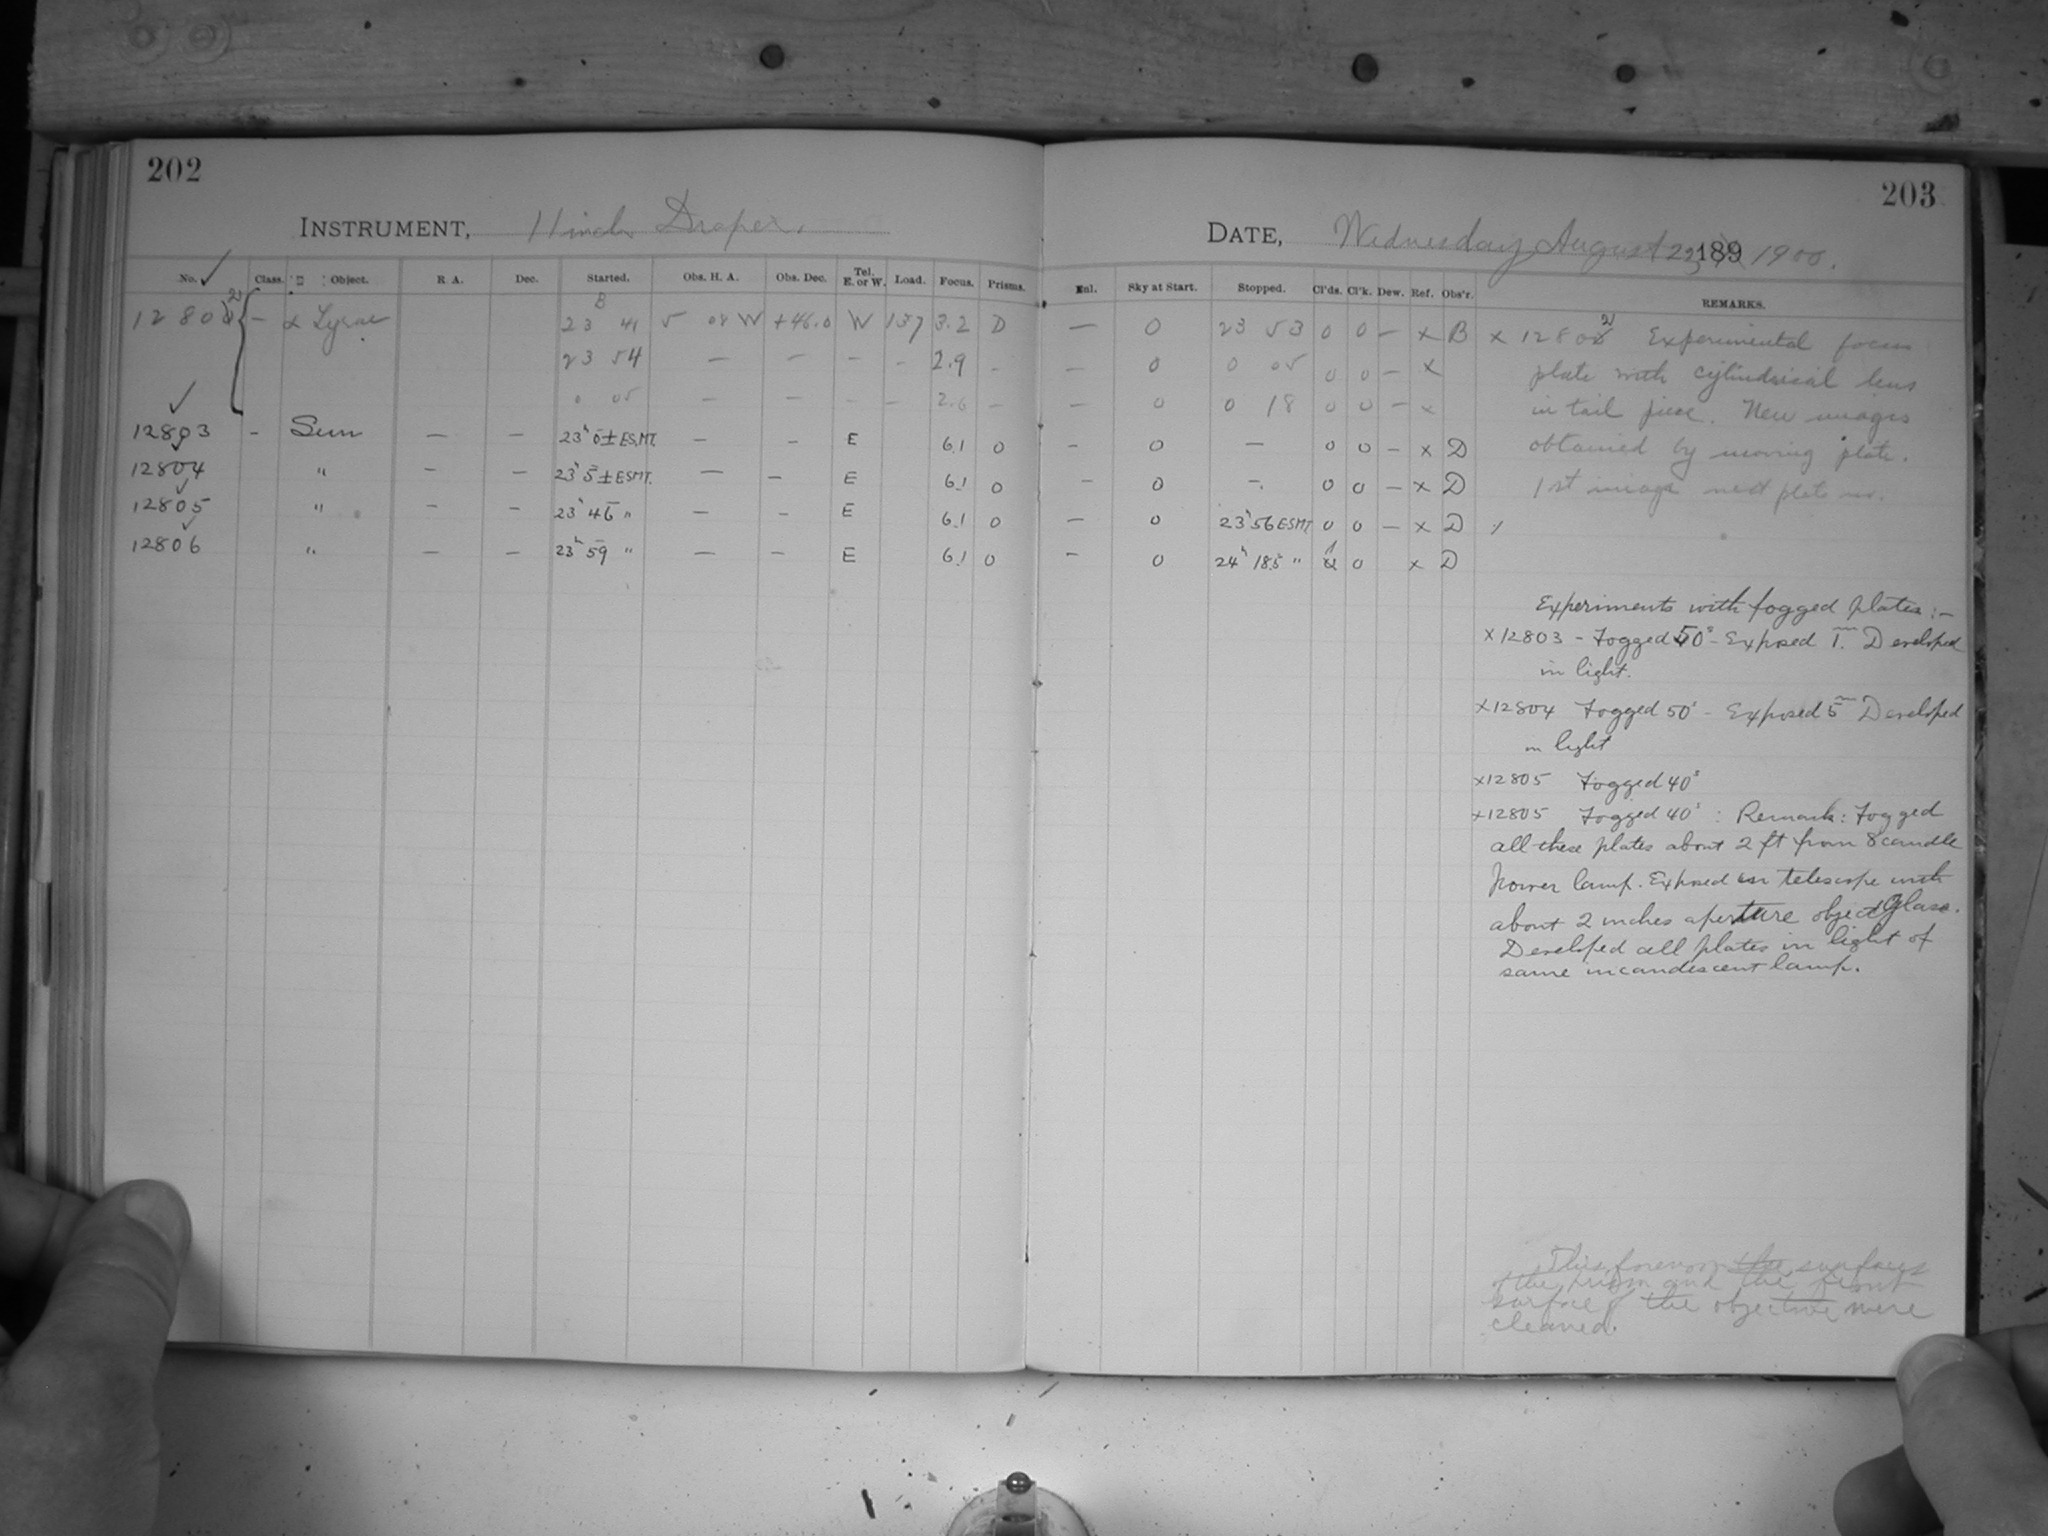 202
INSTRUMENT, 11 inch Draper.
No. Class. Object. R A. Dec. Started. Obs. H. A. Obs. Dec. Tel. E. or W. Load. Focus. Prisms.
B
12802 – α Lyrae 23 41 5 08 W +46.0 W 137 3.2 D
23 54 — – – – 2.9 –
0 05 — – – – 2.6 –
12803 – Sun — — 23ʰ 0± E.S.M.T. — – E 6.1 0
12804 " – — 23ʰ 5± ESMT. — – E 6.1 0
12805 " – – 23ʰ 46 " — – E 6.1 0
12806 " — – 23ʰ 59 " — – E 6.1 0
203
DATE, Wednesday August 22, 189 1900.
Enl. Sky at Start. Stopped. Cl'ds. Cl'k. Dew. Ref. Obs'r. REMARKS.
— 0 23 53 0 0 – x B x 12802 Experimental focus
– 0 0 05 0 0 – x plate with cylindrical lens
– 0 0 18 0 0 – x in tail piece. New images
– 0 — 0 0 – x D obtained by moving plate.
– 0 –. 0 0 – x D 1st image next plate no.
— 0 23ʰ56 ESMT 0 0 – x D
– 0 24ʰ 18.5 " 1 0 x D
Experiments with fogged plates:–
x 12803 – Fogged 50ˢ – Exposed 1ᵐ. Developed
in light.
x 12804 Fogged 50ˢ – Exposed 5ᵐ Developed
in light
x12805 Fogged 40ˢ
x12805 Fogged 40ˢ : Remark: Fogged
all these plates about 2 ft from 8 candle
power lamp. Exposed in telescope with
about 2 inches aperture object Glass.
Developed all plates in light of
same incandescent lamp.
This forenoon the surfaces
of the prism and the front
surface of the objective were
cleaned.